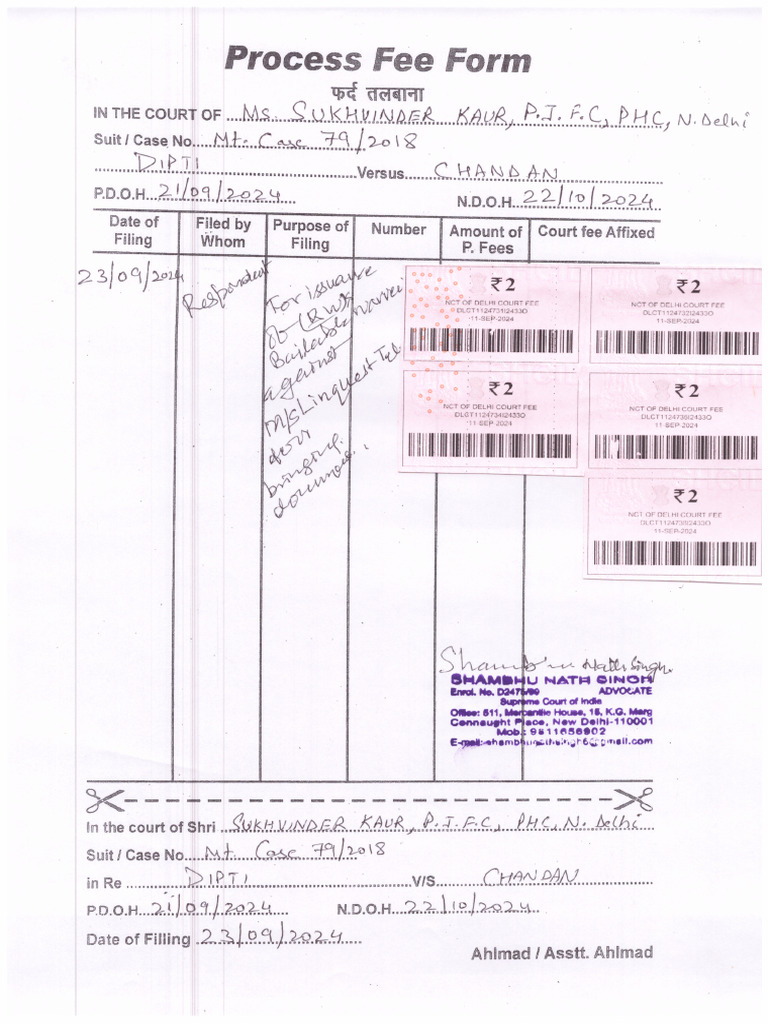 Process Fee Form
फर्द तलबाना
IN THE COURT OF ....Ms. SUKHVINDER KAUR, P.J.F.C, PHC, N. Delhi
Suit / Case No.....Mt. Case 79/2018
DIPTI ....Versus.... CHANDAN
P.D.O.H...21/09/2024 N.D.O.H...22/10/2024
Date of Filing Filed by Whom Purpose of Filing Number Amount of P. Fees Court fee Affixed
23/09/2024 Respondent
For issuance
of (RW)
Bailable
against
M/s Linquest Tel
for
bringing
documents.
₹2
NCT OF DELHI COURT FEE
DLCT1124731I2433O
11-SEP-2024
₹2
NCT OF DELHI COURT FEE
DLCT1124732I2433O
11-SEP-2024
₹2
NCT OF DELHI COURT FEE
DLCT1124734I2433O
11-SEP-2024
₹2
NCT OF DELHI COURT FEE
DLCT1124736I2433O
11-SEP-2024
₹2
NCT OF DELHI COURT FEE
DLCT1124738I2433O
11-SEP-2024
Shambhu Nath Singh
SHAMBHU NATH SINGH
Enrol. No. ADVOCATE
Supreme Court of India
Office: 511, Mercantile House, 15, K.G. Marg
Connaught Place, New Delhi-110001
Mob.: 9811656902
In the court of Shri ..SUKHVINDER KAUR, P.J.F.C, PHC, N. Delhi
Suit / Case No....Mt Case 79/2018
in Re ............DIPTI............V/S............CHANDAN
P.D.O.H...21/09/2024 N.D.O.H...22/10/2024
Date of Filling ..23/09/2024
Ahlmad / Asstt. Ahlmad